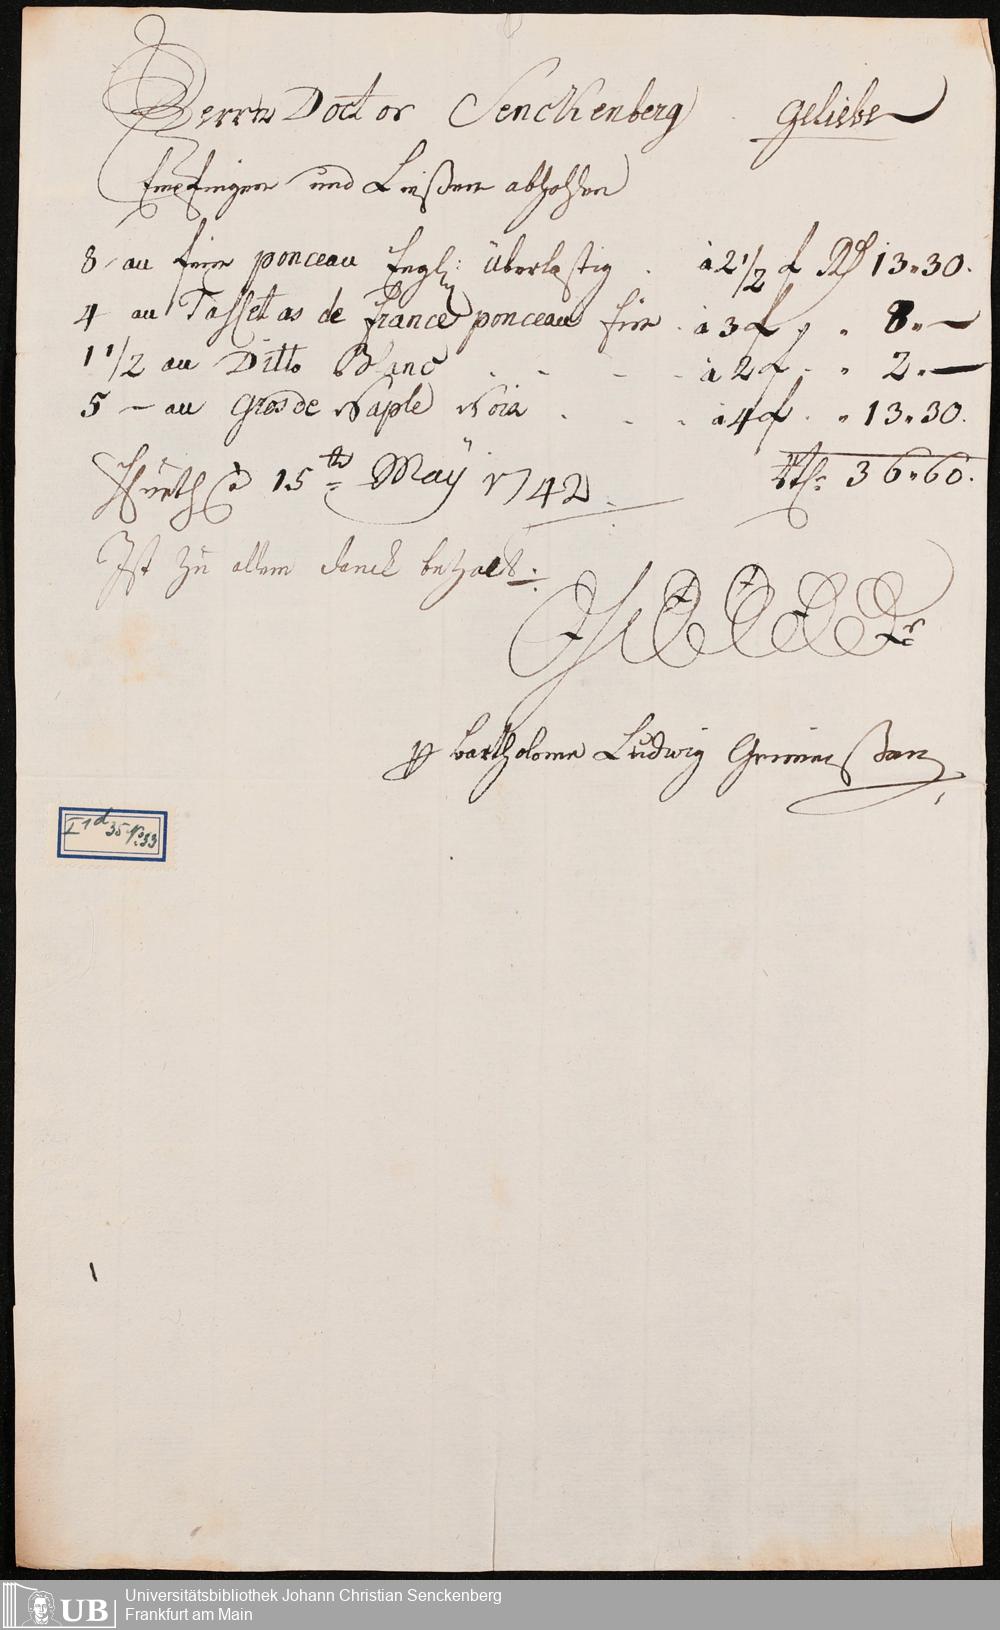 Herrn Doctor Senckenberg geliebe
Empfingen und Ließen abhohlen
8 - au fein ponceau Engl: überlastig . à 2 1/2 f Rth 13 " 30.
4 au Taffetas de france ponceau fein . à 3 f " 8 " —
1 1/2 au Ditto Blanc . - - - à 2 f - " 2 " —
5 — au Gros de Naple Noir . - - à 4 f . " 13 " 30.
15 th May 1742. Rth: 36 " 60.
Ist zu allem danck bezalt.
pp Bartholome Ludwig
I 1 d 35 No. 33
UB Universitätsbibliothek Johann Christian Senckenberg
Frankfurt am Main